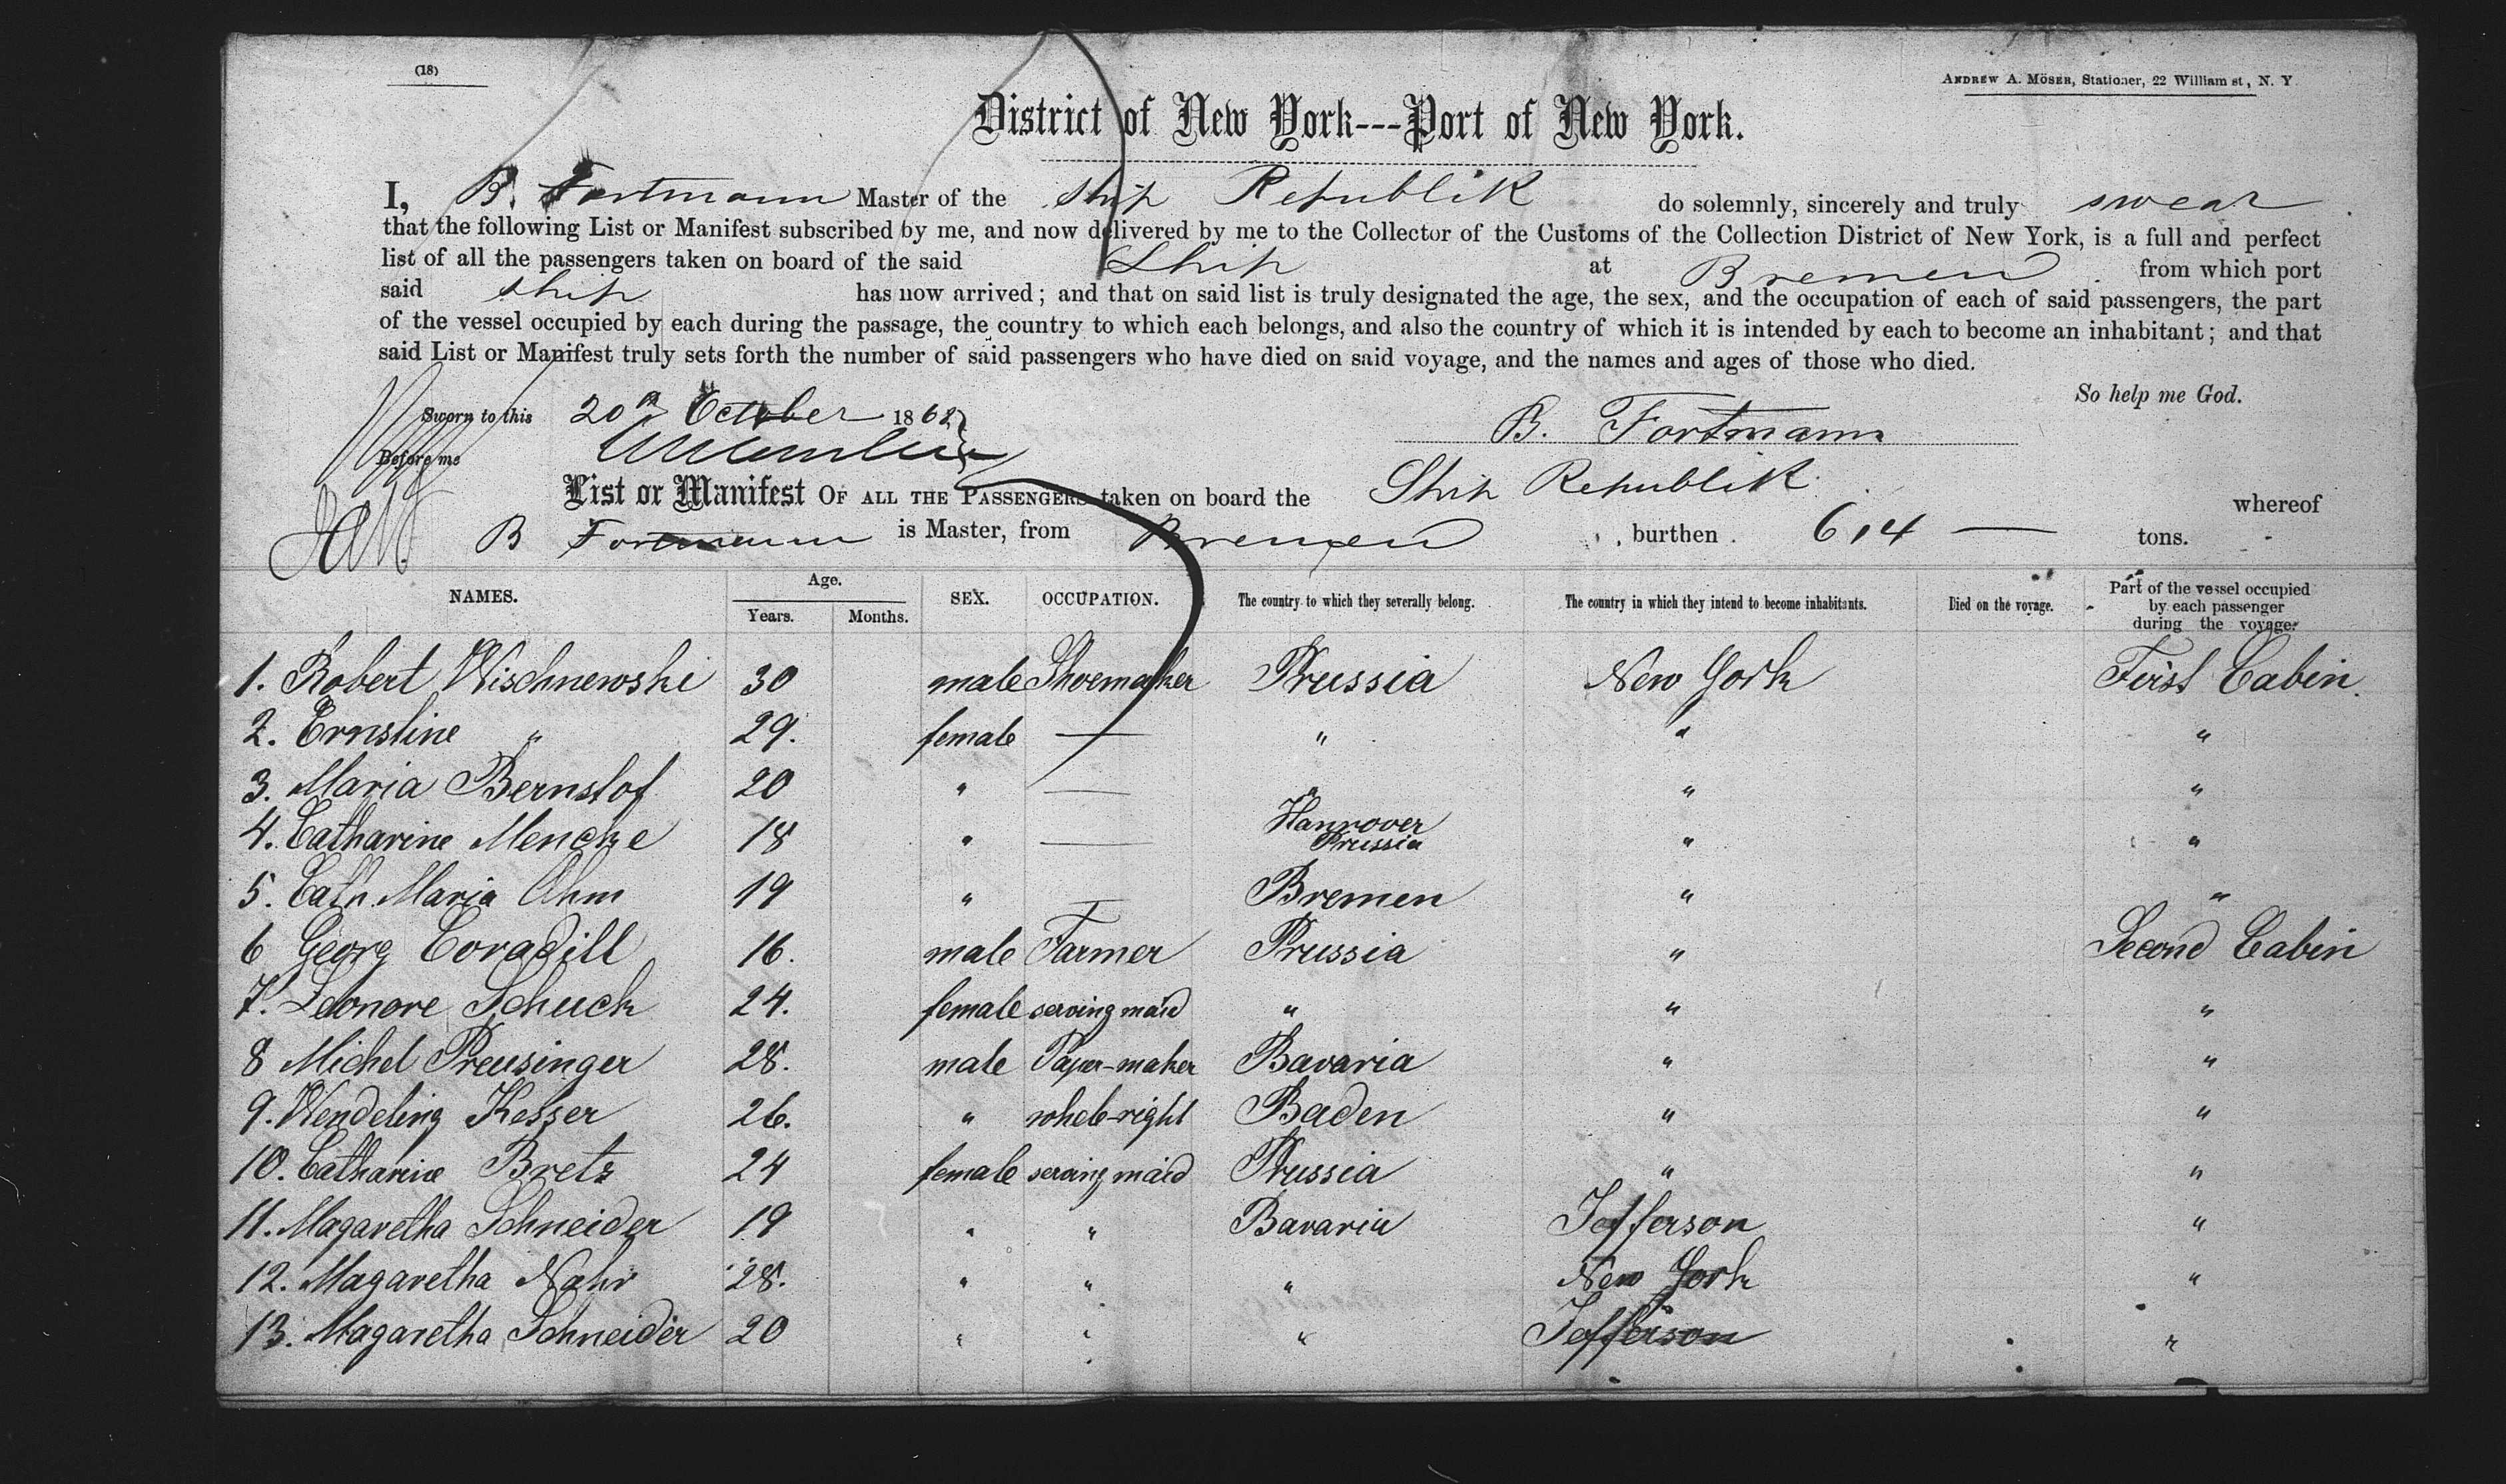 (18)
ANDREW A. MÖSER, Stationer, 22 William st, N. Y.
District of New York---Port of New York.
I, B. Fortmann Master of the ship Republik do solemnly, sincerely and truly swear
that the following List or Manifest subscribed by me, and now delivered by me to the Collector of the Customs of the Collection District of New York, is a full and perfect
list of all the passengers taken on board of the said Ship at Bremen from which port
said ship has now arrived; and that on said list is truly designated the age, the sex, and the occupation of each of said passengers, the part
of the vessel occupied by each during the passage, the country to which each belongs, and also the country of which it is intended by each to become an inhabitant; and that
said List or Manifest truly sets forth the number of said passengers who have died on said voyage, and the names and ages of those who died.
So help me God.
Sworn to this 20th October 1862
B. Fortmann
Before me
List or Manifest OF ALL THE PASSENGERS taken on board the Ship Republik whereof
B Fortmann is Master, from Bremen burthen 614 — tons.
NAMES. Age. Years. Months. SEX. OCCUPATION. The country to which they severally belong. The country in which they intend to become inhabitants. Died on the voyage. Part of the vessel occupied by each passenger during the voyage.
1. Robert Wischnewski 30 male Shoemaker Prussia New York First Cabin.
2. Ernstine " 29. female — " " "
3. Maria Bernstof 20 " — " " "
4. Catharine Mencke 18 " — Hannover Prussia " "
5. Cath. Maria Ahm 19 " — Bremen " "
6 Georg Coradill 16. male Farmer Prussia " Second Cabin
7. Leonore Schuck 24. female serving maid " " "
8 Michel Preusinger 28. male Paper-maker Bavaria " "
9. Wendeling Kesser 26. " whele-right Baden " "
10. Catharine Bretz 24 female serving maid Prussia " "
11. Magaretha Schneider 19 " " Bavaria Jefferson "
12. Magaretha Nahr 28. " " " New York "
13. Magaretha Schneider 20 " " " Jefferson "